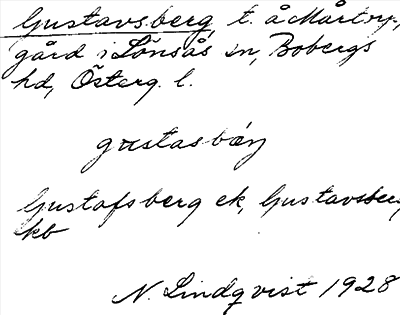 Gustavsberg, t. å Mårtorp,
gård i Lönsås sn, Bobergs
hd, Österg. l.
gustasbärj
Gustafsberg ek, Gustavsberg
kb
N. Lindqvist 1928